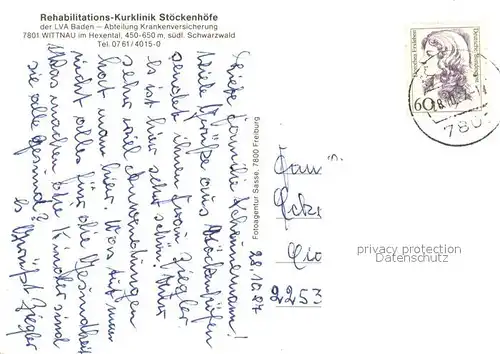 Rehabilitations-Kurklinik Stöckenhöfe
der LVA Baden – Abteilung Krankenversicherung
7801 WITTNAU im Hexental, 450-650 m, südl. Schwarzwald
Tel. 07 61 / 40 15-0
Liebe Familie Scheunemann!
Viele Grüße aus Stöckenhöfen
sendet Ihnen Frau Ziegler.
es ist hier sehr schön. Nur
sehr viel Anwendungen
hat man hier. Was tut man
nicht alles für die Gesundheit
Was machen die Kinder sind
sie alle gesund?
Es Grüßt Ziegler
28.10.87
Fotoagentur Sasse, 7800 Freiburg
Fam
2253
60
Deutsche Bundespost
780
privacy protection
Datenschutz